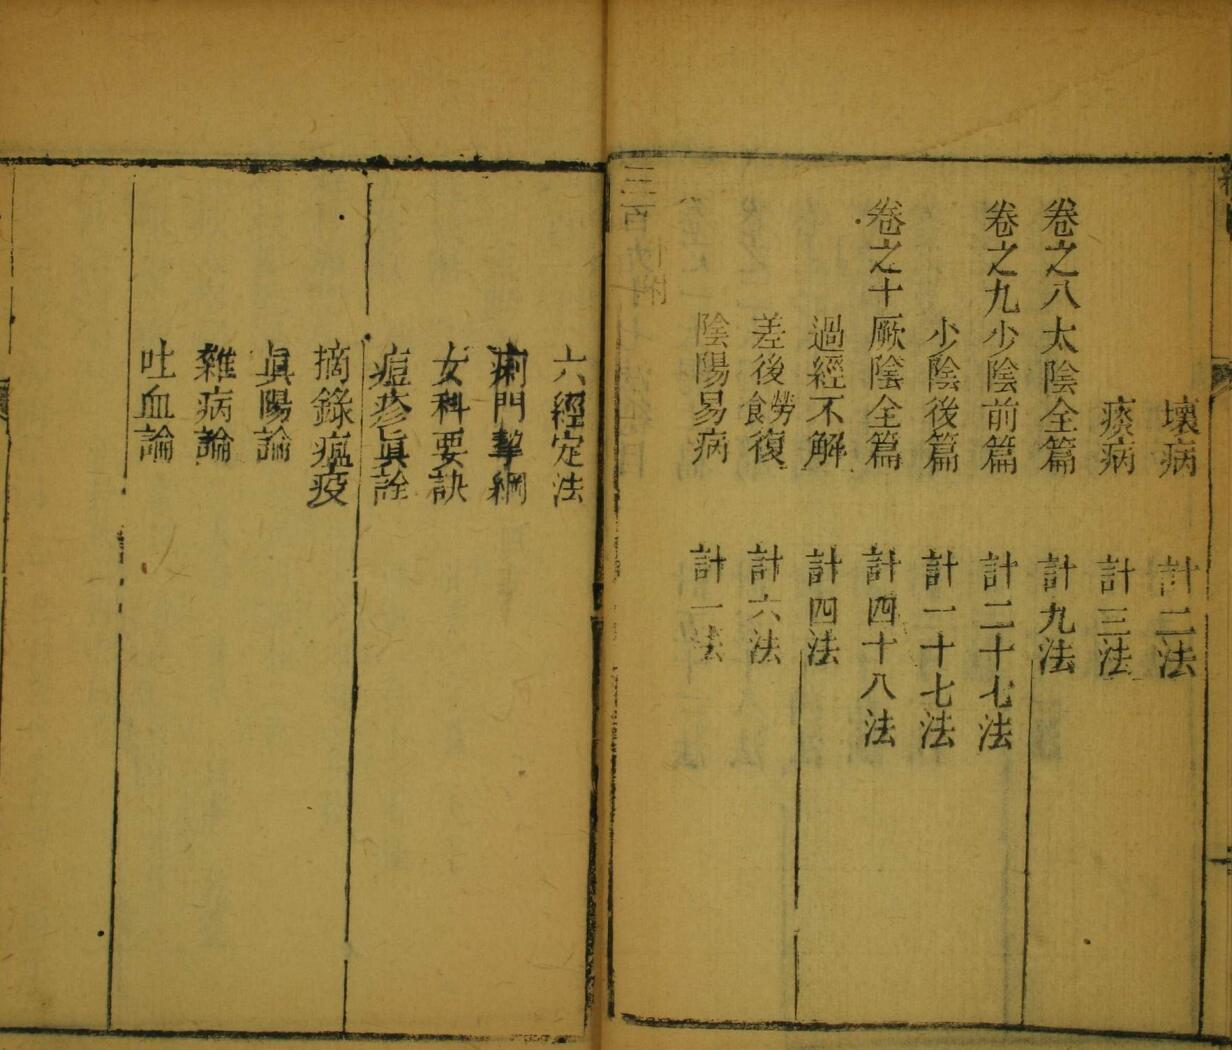 壞病 計二法
痰病 計三法
卷之八太陰全篇 計九法
卷之九少陰前篇 計二十七法
少陰後篇 計一十七法
卷之十厥陰全篇 計四十八法
過經不解 計四法
差後勞復 計六法
陰陽易病 計一法
三百九十七法
附
六經定法
痢門挈綱
女科要訣
痘疹眞詮
摘錄瘟疫
眞陽論
雜病論
吐血論